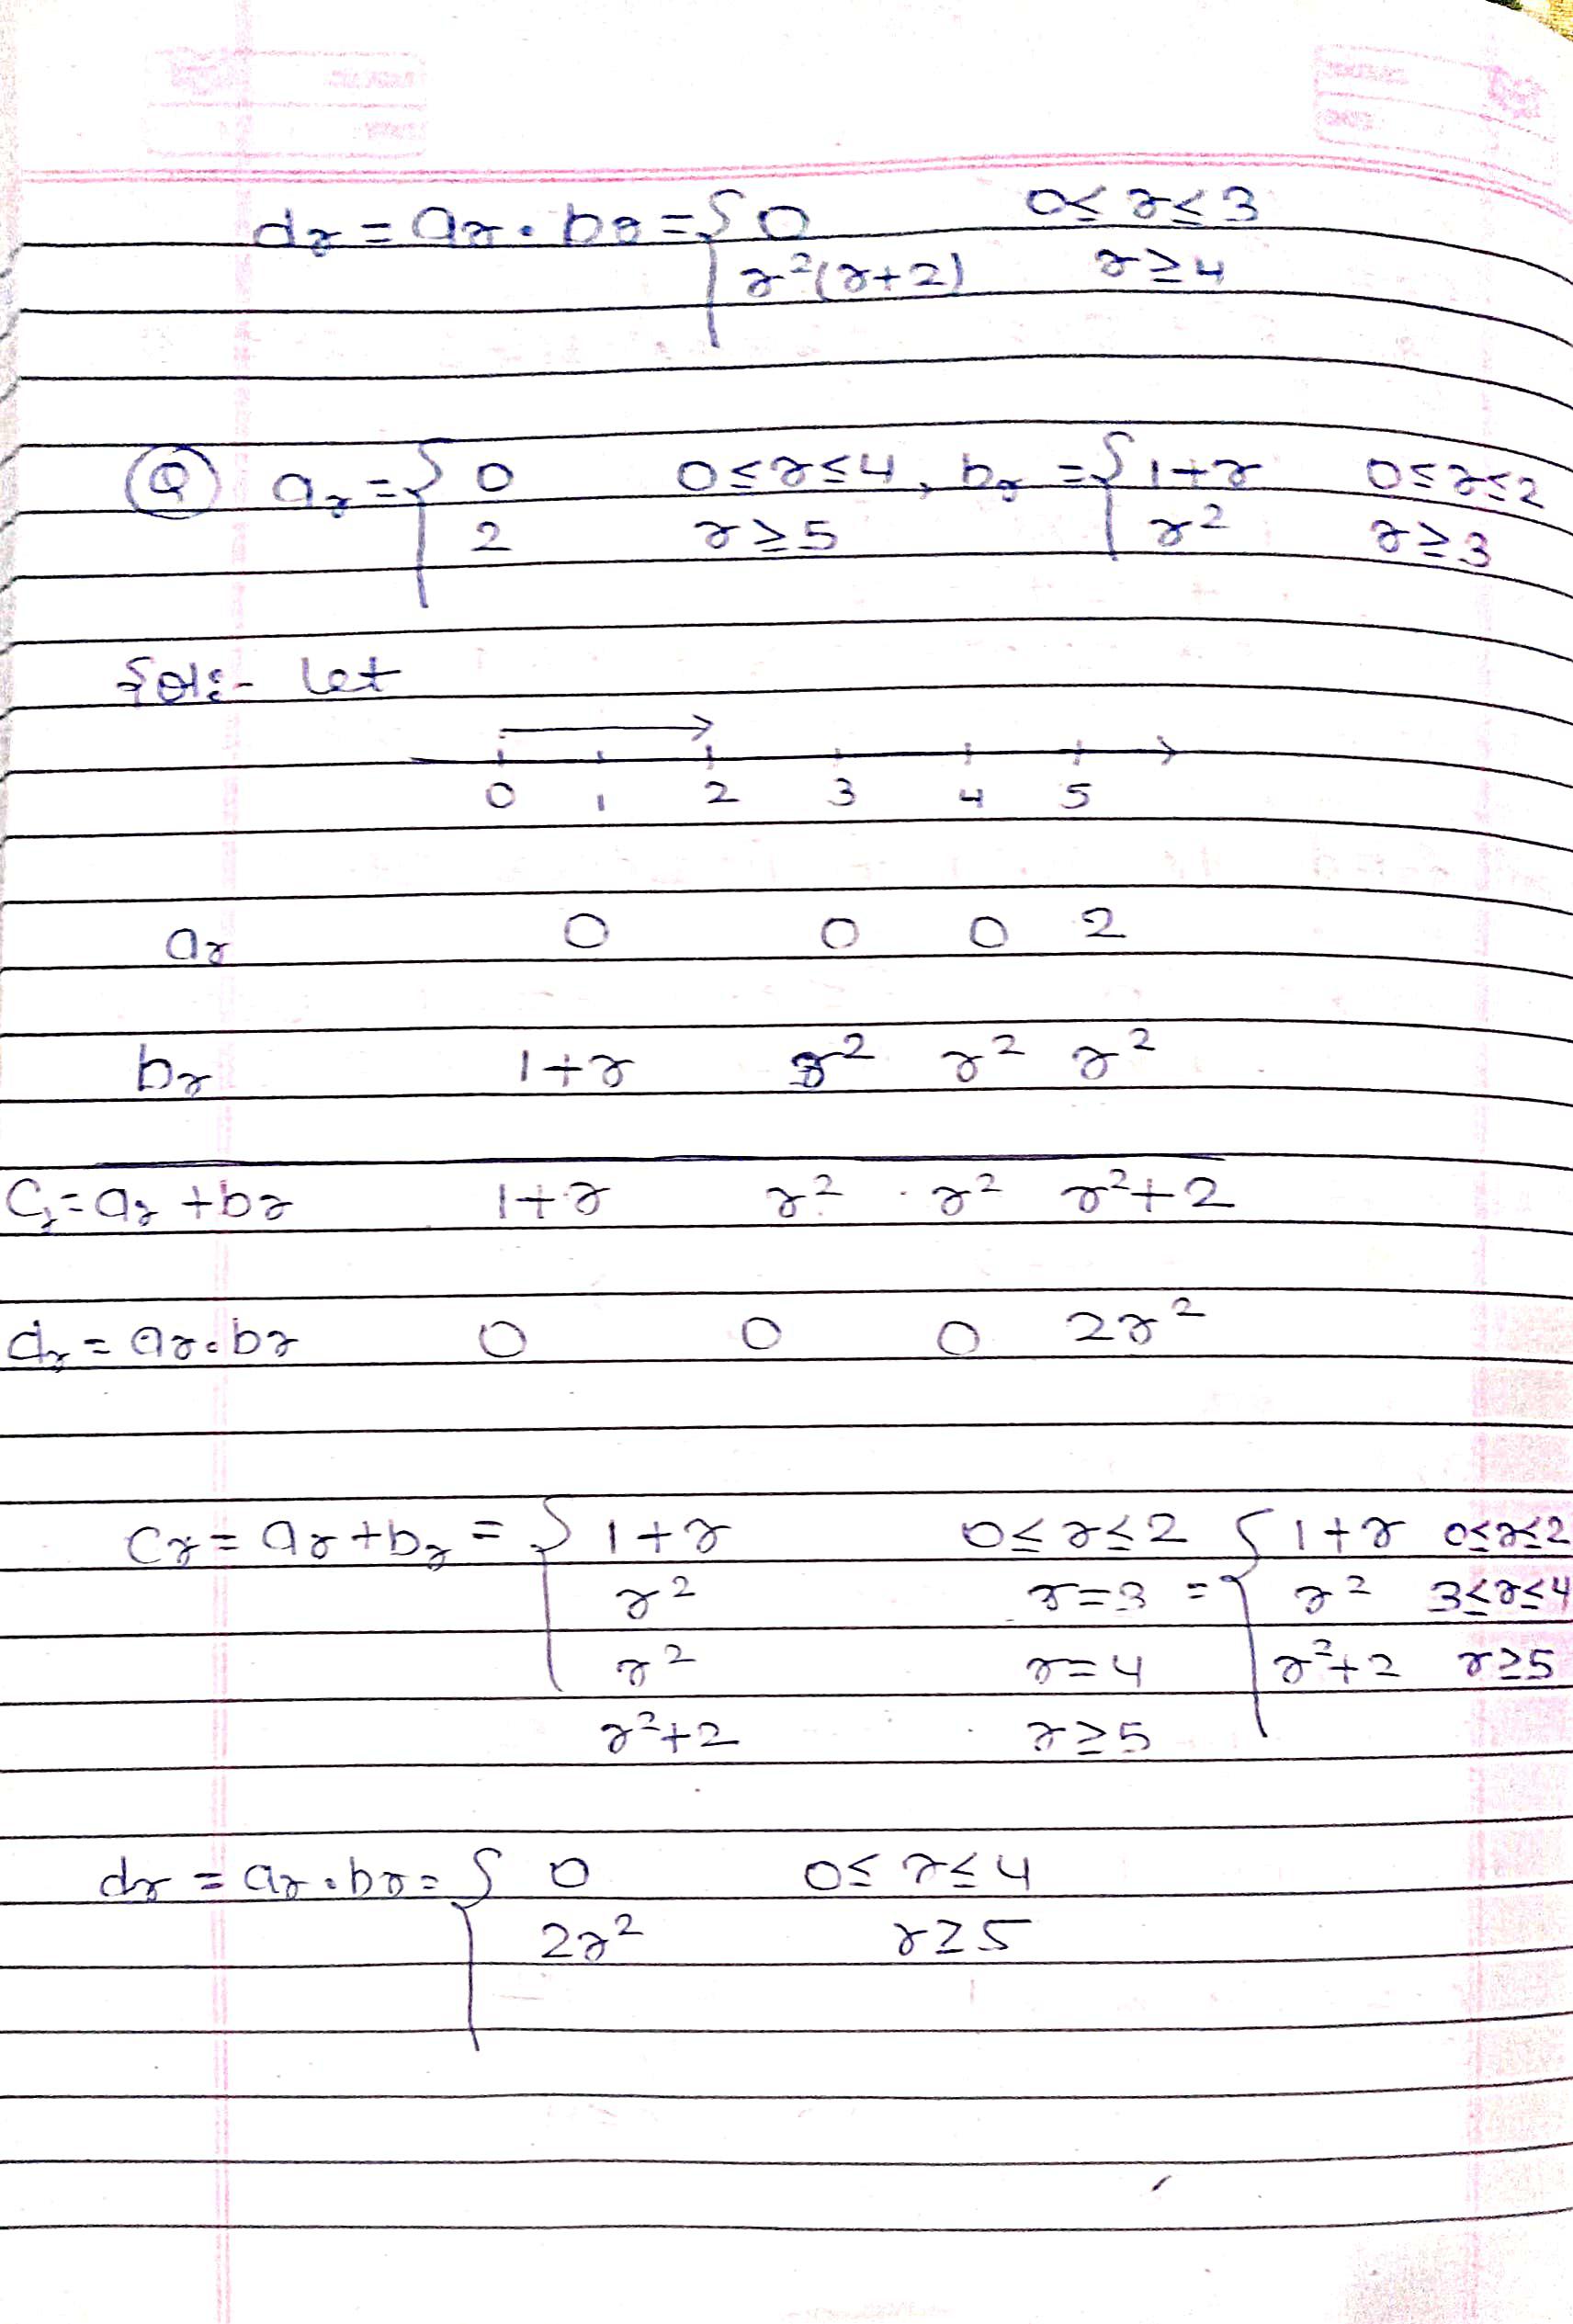 dr = ar . br = { 0 0 ≤ r ≤ 3
r²(r+2) r ≥ 4
Q ar = { 0 0 ≤ r ≤ 4, br = { 1+r 0 ≤ r ≤ 2
2 r ≥ 5 r² r ≥ 3
Sol:- let
0 1 2 3 4 5
ar 0 0 0 2
br 1+r r² r² r²
Cr = ar + br 1+r r² r² r²+2
dr = ar.br 0 0 0 2r²
Cr = ar + br = { 1+r 0 ≤ r ≤ 2 { 1+r 0≤r≤2
r² r=3 = r² 3≤r≤4
r² r=4 r²+2 r≥5
r²+2 r≥5
dr = ar.br = { 0 0 ≤ r ≤ 4
2r² r ≥ 5